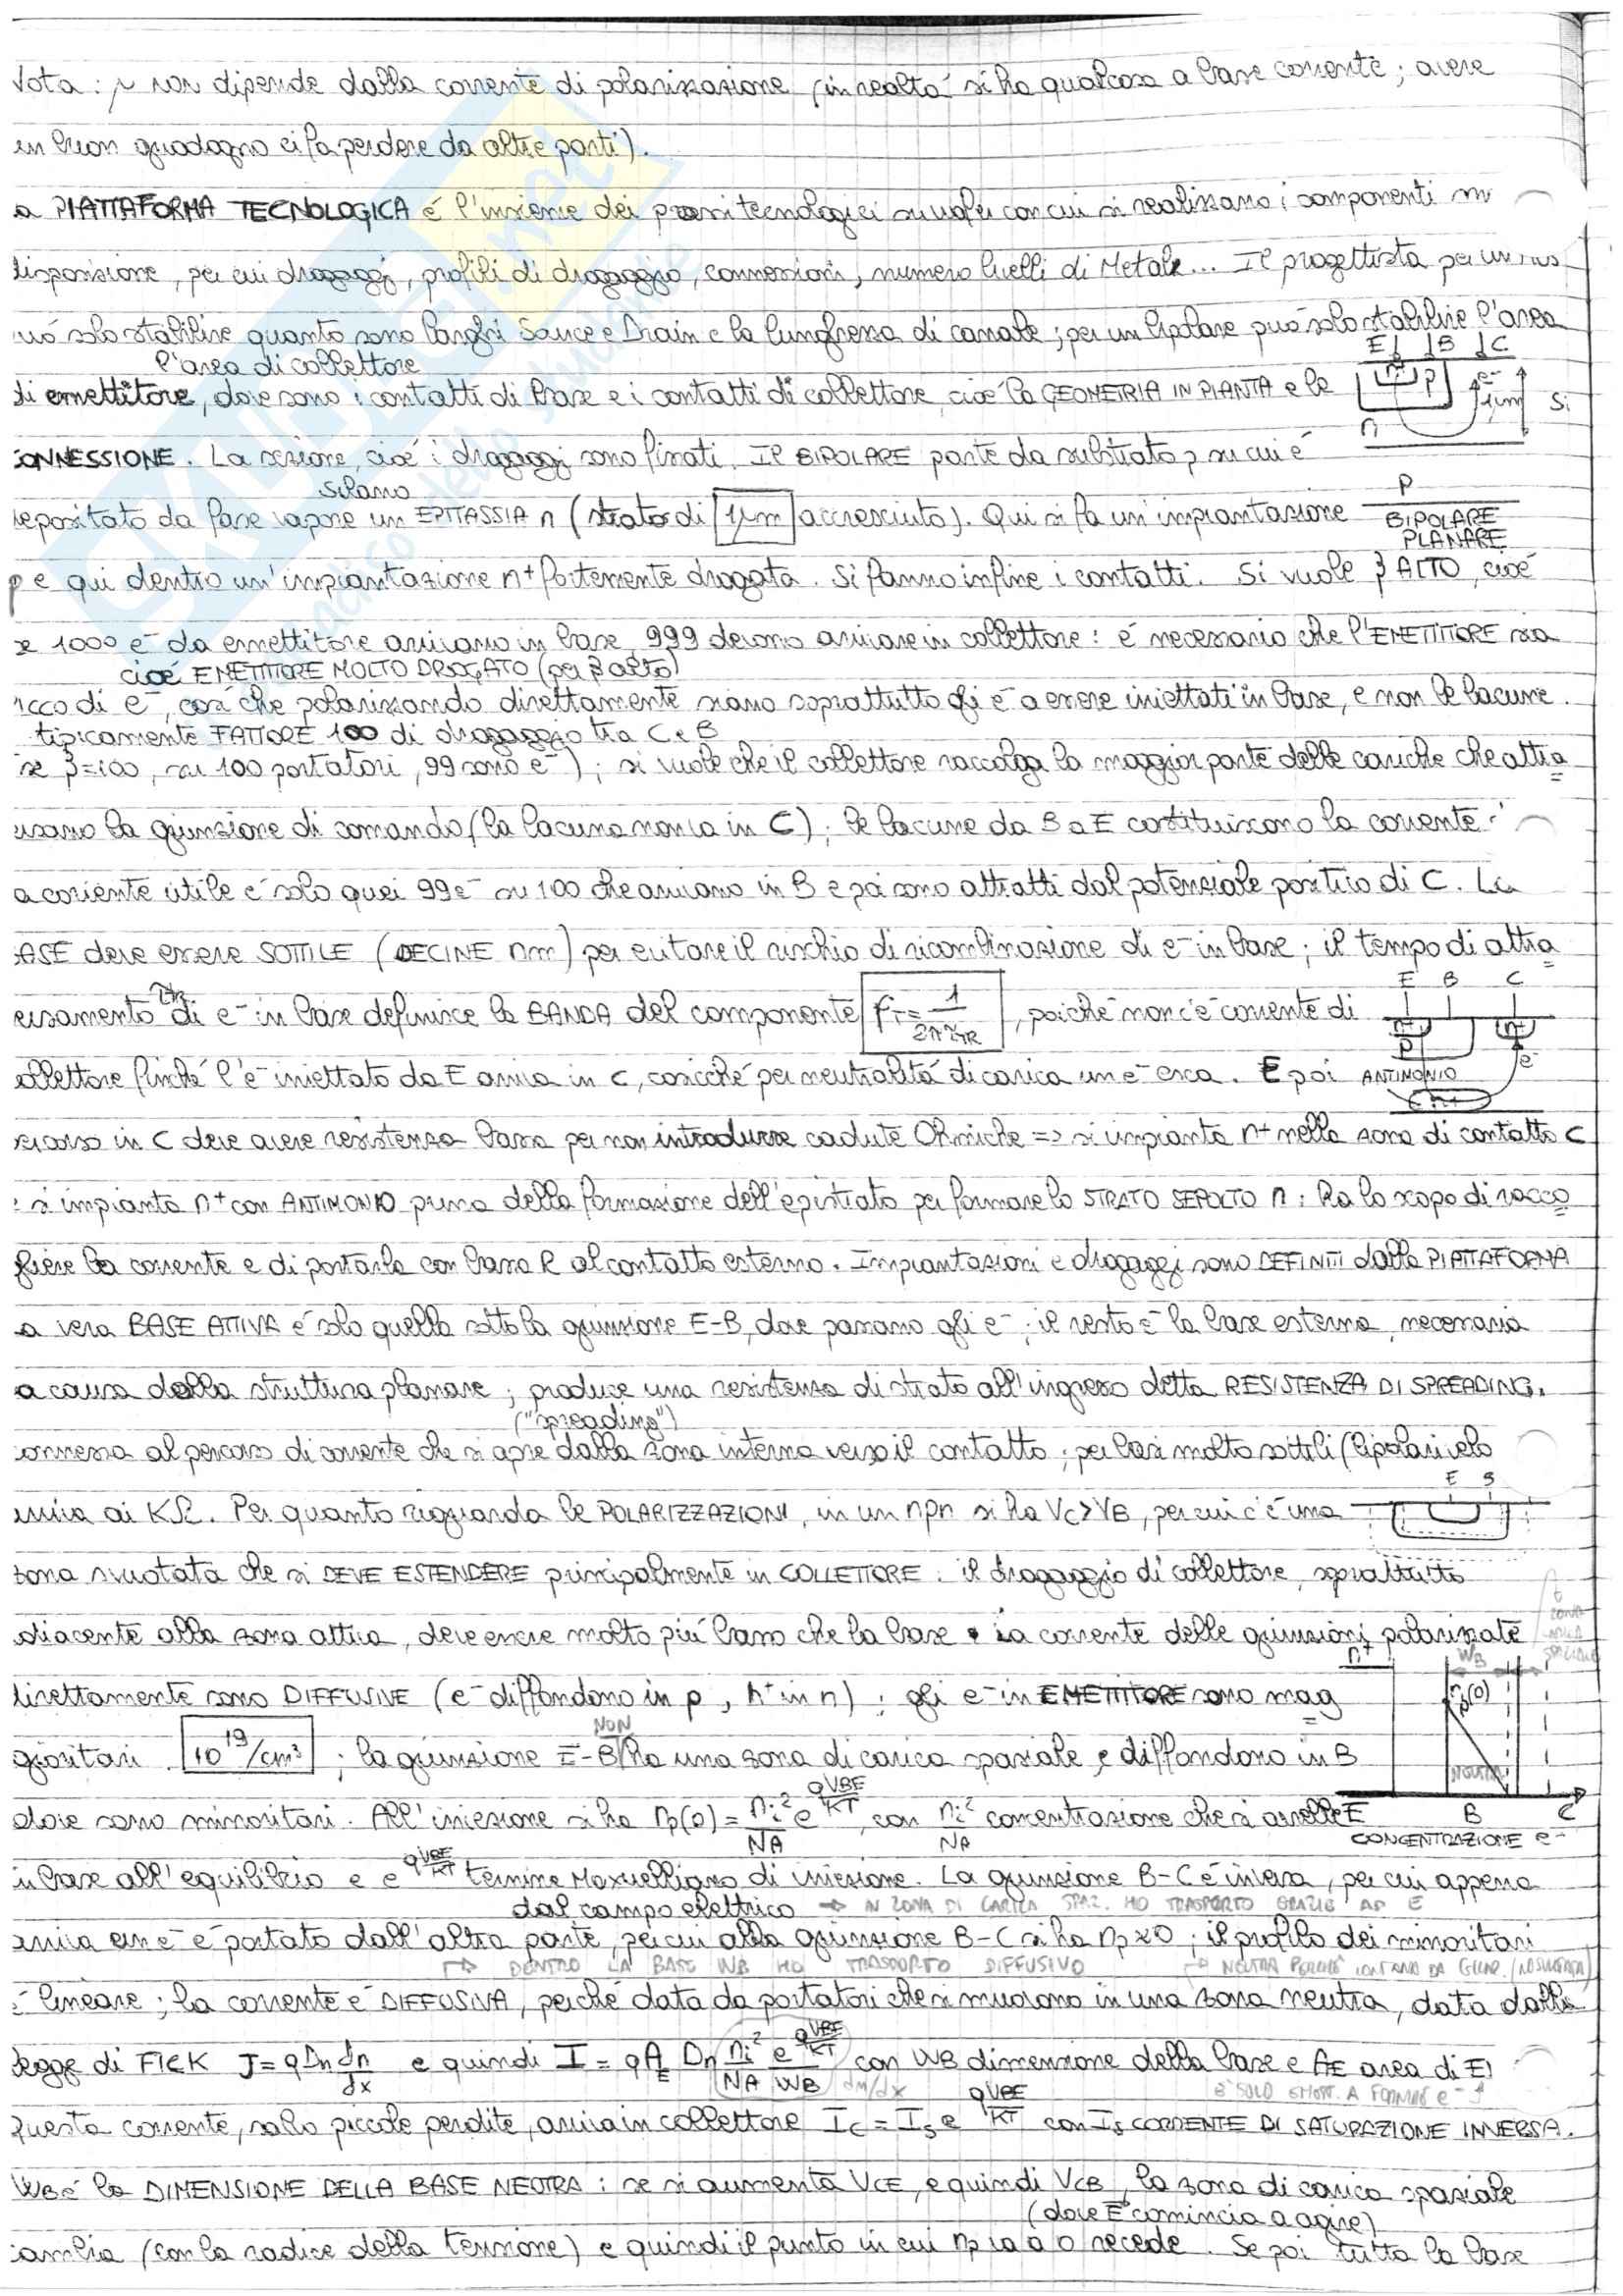 Nota: μ non dipende dalla corrente di polarizzazione (in realtà si ha qualcosa a basse correnti; avere
un buon guadagno ci fa perdere da altre parti).
a PIATTAFORMA TECNOLOGICA é l'insieme dei passi tecnologici su wafer con cui si realizzano i componenti in
disposizione, per cui drogaggi, profili di drogaggio, connessioni, numero livelli di Metale... Il progettista per un mos
può solo stabilire quanto sono larghi Source e Drain e la lunghezza di canale; per un bipolare può solo stabilire l'area
l'area di collettore
E B C
di emettitore, dove sono i contatti di base e i contatti di collettore, cioé la GEOMETRIA IN PIANTA e le
n+ p e- 1μm Si
n
CONNESSIONE. La sezione, cioé i drogaggi sono fissati. Il BIPOLARE parte da substrato p su cui é
silicio
P
depositato da fase vapore un EPITASSIA n (strato di 1μm accresciuto). Qui si fa un'impiantazione
BIPOLARE
PLANARE
p e qui dentro un'impiantazione n+ fortemente drogata. Si fanno infine i contatti. Si vuole β ALTO, cioé
se 1000 e- da emettitore arrivano in base, 999 devono arrivare in collettore: é necessario che l'EMETTITORE sia
cioé EMETTITORE MOLTO DROGATO (per β alto)
ricco di e-, così che polarizzando direttamente siano soprattutto gli e- a essere iniettati in base, e non le lacune.
tipicamente FATTORE 100 di drogaggio tra C e B
se β=100, su 100 portatori, 99 sono e-); si vuole che il collettore raccolga la maggior parte delle cariche che attra
versano la giunzione di comando (la lacuna non va in C); le lacune da B a E costituiscono la corrente
a corrente utile é solo quei 99 e- su 100 che arrivano in B e poi sono attratti dal potenziale positivo di C. La
BASE deve essere SOTTILE (DECINE nm) per evitare il rischio di ricombinazione di e- in base; il tempo di attra
E B C
versamento τTR di e- in base definisce la BANDA del componente fT = 1/2πτTR, poiché non c'é corrente di
n+ p n+ e-
collettore finché l'e- iniettato da E arriva in C, cosicché per neutralità di carica un e- esca. E poi
ANTIMONIO
n+
percorso in C deve avere resistenza bassa per non introdurre cadute Ohmiche => si impianta n+ nella zona di contatto C
: si impianta n+ con ANTIMONIO prima della formazione dell'epistrato per formare lo STRATO SEPOLTO n: ha lo scopo di racco
gliere la corrente e di portarla con bassa R al contatto esterno. Impiantazioni e drogaggi sono DEFINITI dalla PIATTAFORMA
a vera BASE ATTIVA é solo quella sotto la giunzione E-B, dove passano gli e-; il resto é la base esterna, necessaria
a causa della struttura planare; produce una resistenza di strato all'ingresso detta RESISTENZA DI SPREADING,
("spreading")
connessa al percorso di corrente che si apre dalla zona interna verso il contatto; per basi molto sottili (bipolari velo
E B
arriva ai KΩ. Per quanto riguarda le POLARIZZAZIONI, in un npn si ha VC>VB, per cui c'é una
zona svuotata che si DEVE ESTENDERE principalmente in COLLETTORE: il drogaggio di collettore, soprattutto
adiacente alla zona attiva, deve essere molto più basso che la base. La corrente delle giunzioni polarizzate
n+ WB
direttamente sono DIFFUSIVE (e- diffondono in p, h+ in n); gli e- in EMETTITORE sono mag
np(0)
NON
gioritari. 10^19/cm³; la giunzione E-B ha una zona di carica spaziale, e diffondono in B
NEUTRA
dove sono minoritari. All'iniezione si ha np(0) = ni²/NA e^(qVBE/KT), con ni²/NA concentrazione che si avrebbe
E B C
CONCENTRAZIONE e-
in base all'equilibrio e e^(qVBE/KT) termine Maxwelliano di iniezione. La giunzione B-C é inversa, per cui appena
dal campo elettrico → IN ZONA DI CARICA SPAZ. HO TRASPORTO GRAZIE AD E
arriva un e- é portato dall'altra parte, per cui alla giunzione B-C si ha np≈0; il profilo dei minoritari
→ DENTRO LA BASE WB HO TRASPORTO DIFFUSIVO → NEUTRA PERCHÉ LONTANO DA GIUNZ.
é lineare; la corrente é DIFFUSIVA, perché data da portatori che si muovono in una zona neutra, data dalla
legge di FICK J = qDn dn/dx e quindi I = qAE Dn ni²/NA e^(qVBE/KT)/WB con WB dimensione della base e AE area di E
dn/dx
Questa corrente, salvo piccole perdite, arriva in collettore IC = IS e^(qVBE/KT) con IS CORRENTE DI SATURAZIONE INVERSA.
WB é la DIMENSIONE DELLA BASE NEUTRA: se si aumenta VCE, e quindi VCB, la zona di carica spaziale
(dove E comincia a agire)
amplia (con la radice della tensione) e quindi il punto in cui np va a 0 recede. Se poi tutta la base